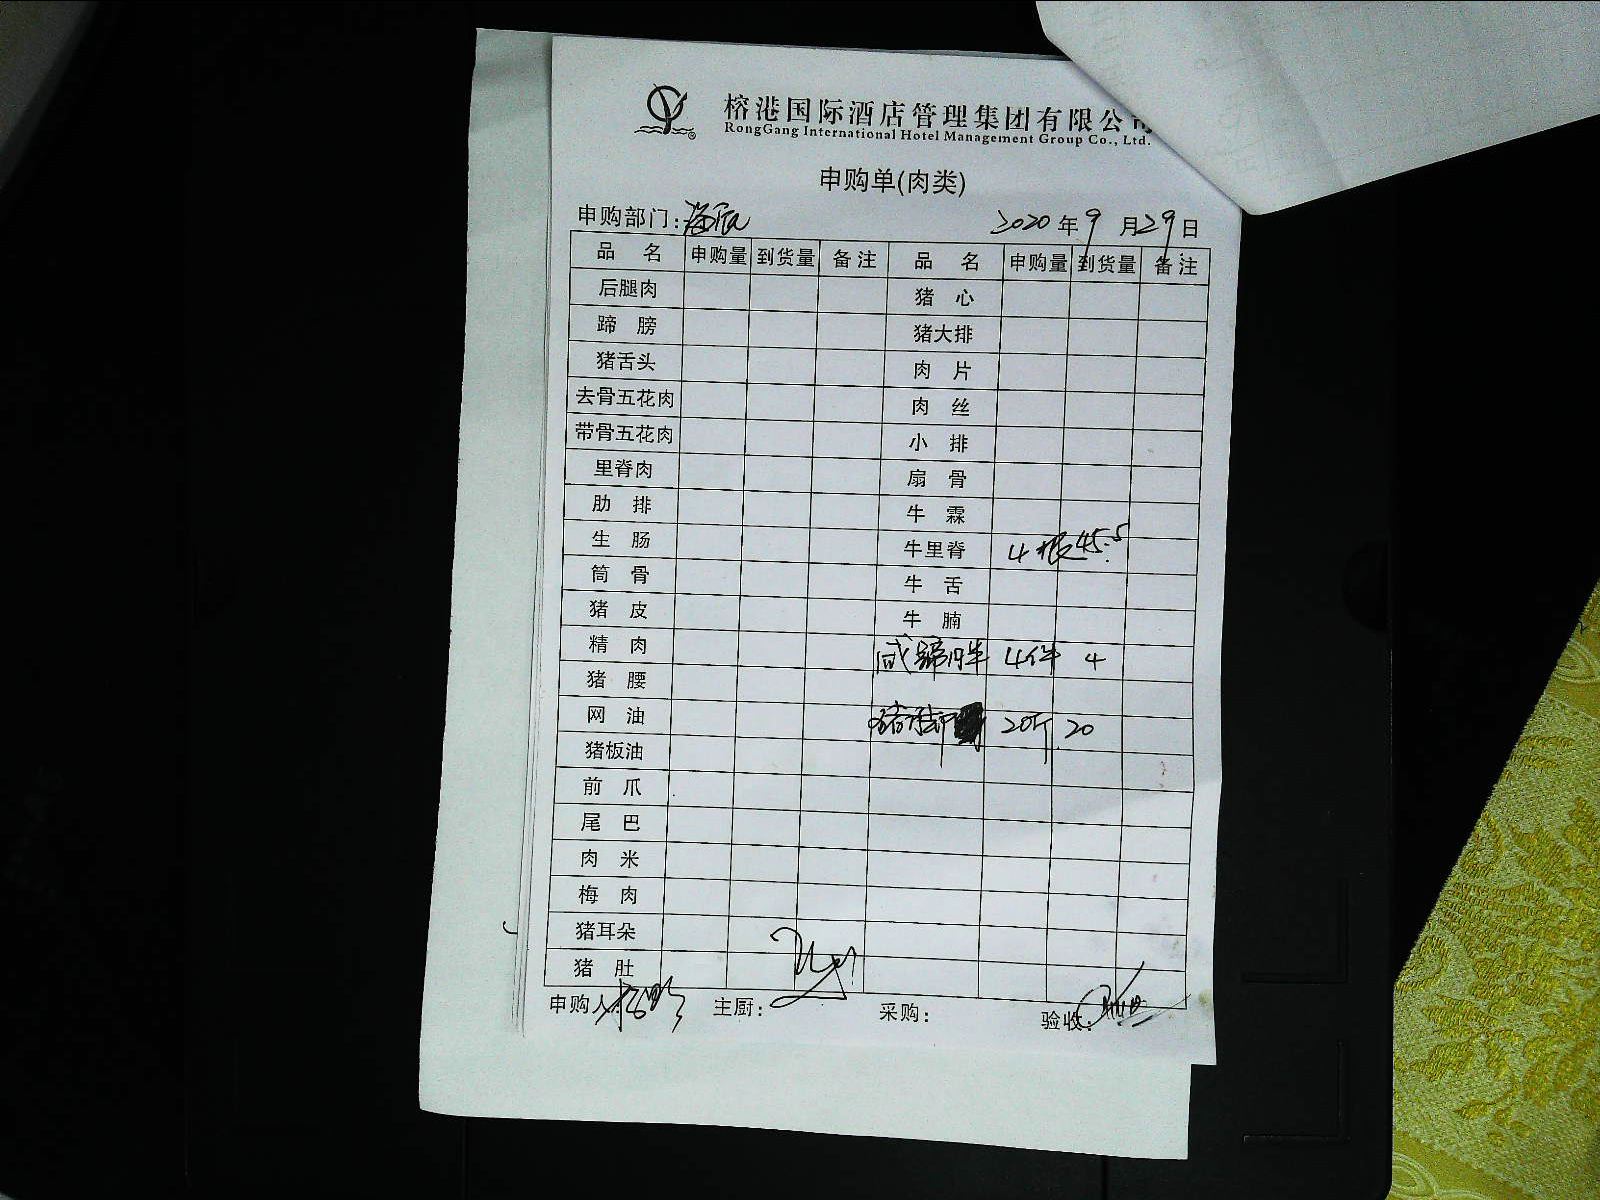 榕港国际酒店管理集团有限公司
RongGang International Hotel Management Group Co., Ltd.
申购单(肉类)
申购部门: 2020年9月29日
品名 申购量 到货量 备注 品名 申购量 到货量 备注
后腿肉 猪心
蹄膀 猪大排
猪舌头 肉片
去骨五花肉 肉丝
带骨五花肉 小排
里脊肉 扇骨
肋排 牛霖
生肠 牛里脊 4根 45.5
筒骨 牛舌
猪皮 牛腩
精肉 咸蹄胖 4件 4
猪腰
网油 猪 20斤 20
猪板油
前爪
尾巴
肉米
梅肉
猪耳朵
猪肚
申购人: 主厨: 采购: 验收: